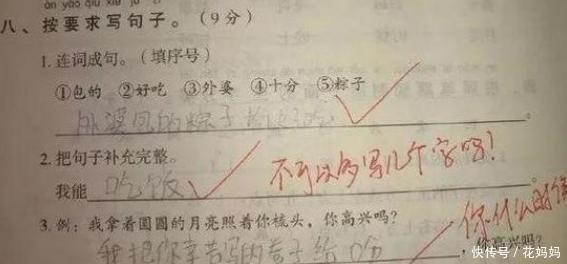 àn yāo qiú xiě jù
八、按要求写句子。(9分)
1. 连词成句。(填序号)
①包的 ②好吃 ③外婆 ④十分 ⑤粽子
外婆包的粽子十分好吃
2. 把句子补充完整。
不可以多写几个字吗!
我能吃饭。
3. 例:我拿着圆圆的月亮照着你梳头,你高兴吗?
你什么时候
我把你辛苦写的卷子给
,你高兴吗?
快传号/花妈妈